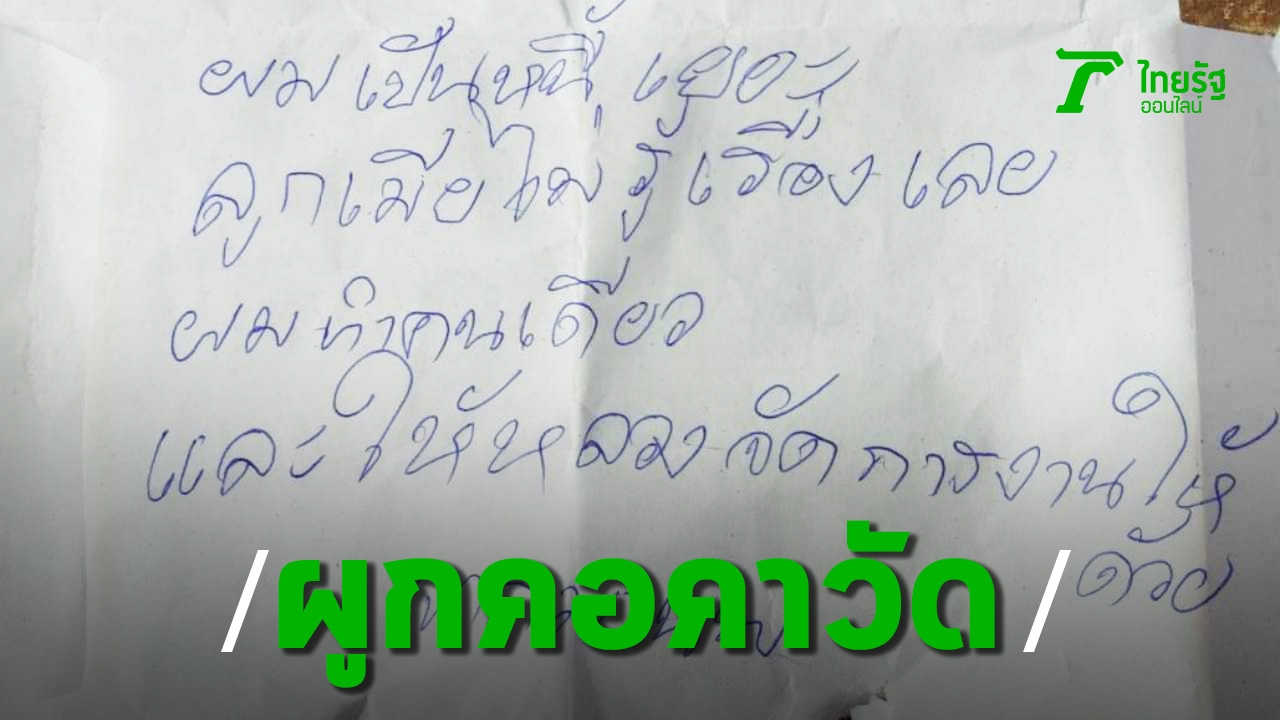 ไทยรัฐ
ออนไลน์
ผมเป็นหนี้ เยอะ
ลูกเมียไม่รู้เรื่องเลย
ผมทำคนเดียว
และให้หลวงจัดการงานให้
ด้วย
/ผูกคอคาวัด/